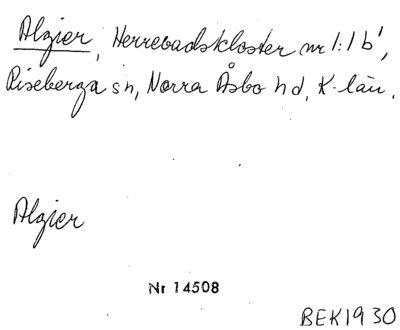 Algier, Herrevadskloster nr 1:1 b',
Riseberga sn, Norra Åsbo hd, K-län.
Algier
Nr 14508
BEK1930